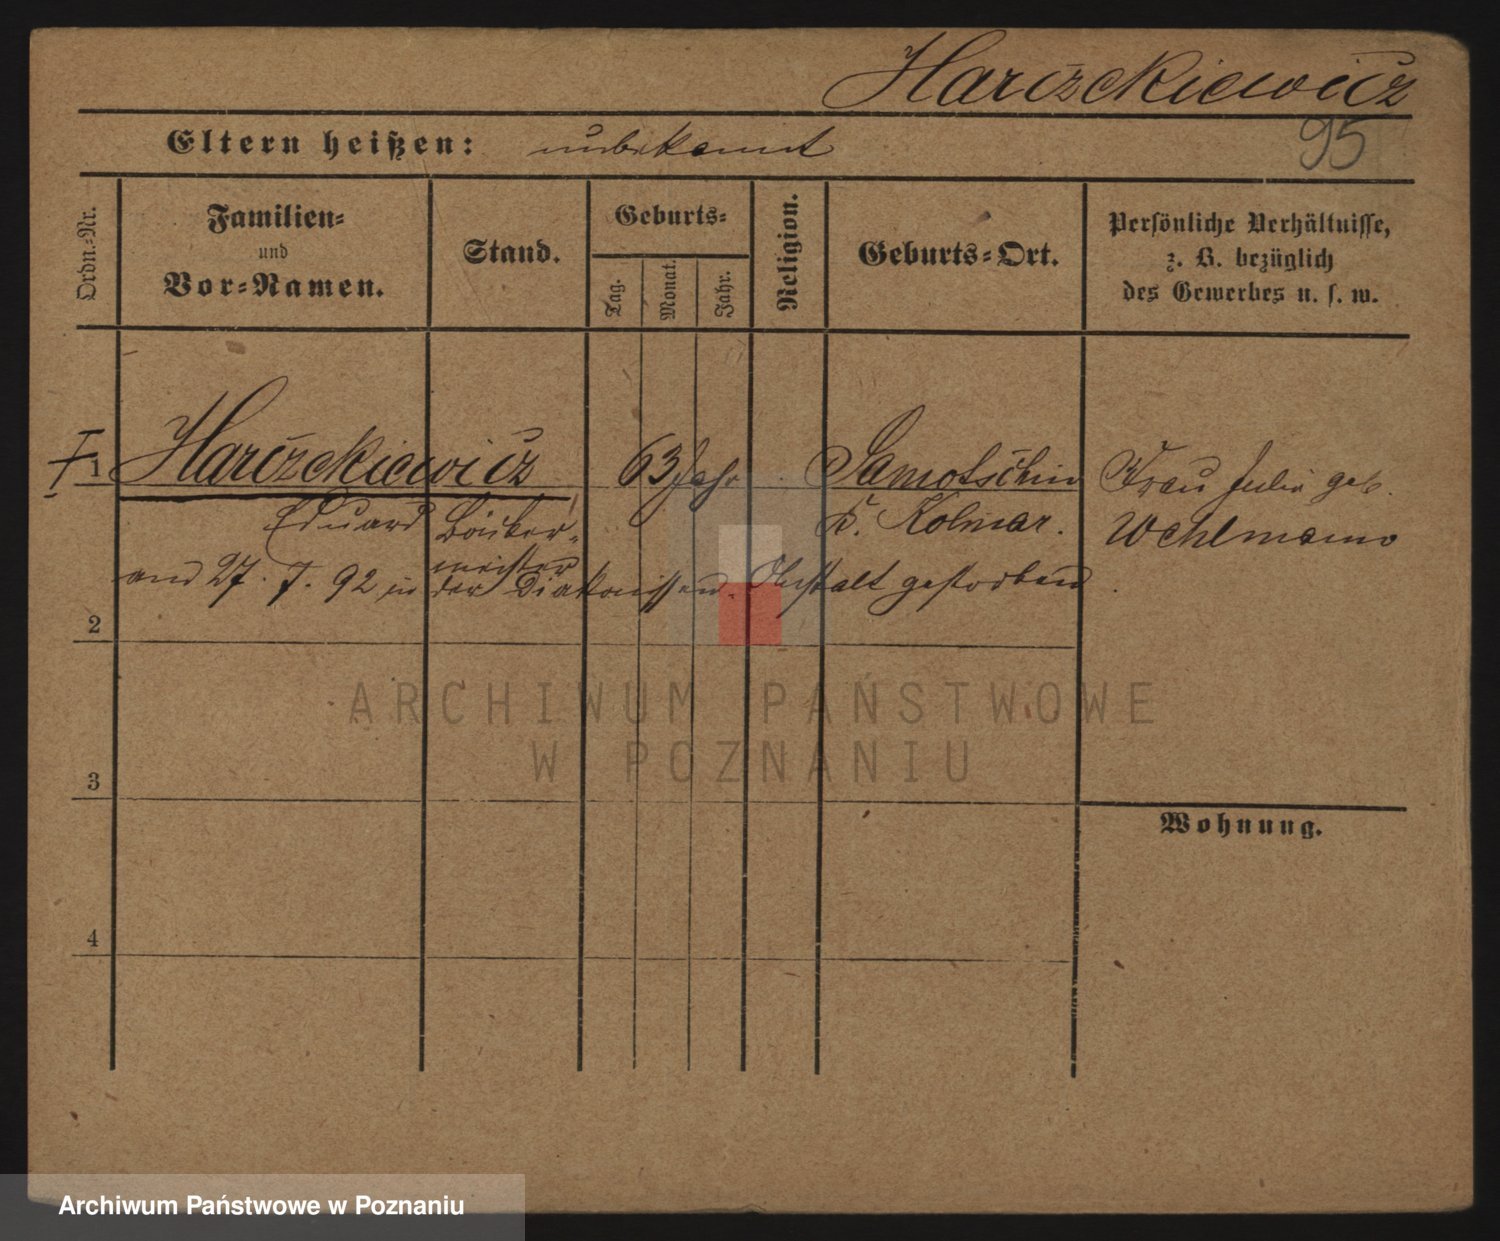 Harczekiewicz
95
Eltern heißen: unbekannt
Ordn.-Nr.
Familien-
und
Vor-Namen.
Stand.
Geburts-
Tag.
Monat.
Jahr.
Religion.
Geburts-Ort.
Persönliche Verhältnisse,
z. B. bezüglich
des Gewerbes u. s. w.
1 Harczekiewicz 63 Jahr Samotschin Frau Julie geb.
Eduard Böttcher- K. Kolmar. Wehlmann
meister
am 27. 7. 92 in der Diakonissen-Anstalt gestorben
2
3
4
Wohnung.
ARCHIWUM PAŃSTWOWE
W POZNANIU
Archiwum Państwowe w Poznaniu